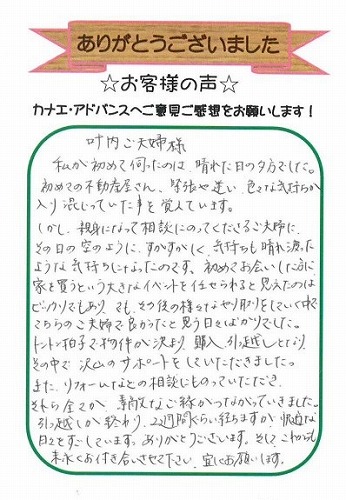 ありがとうございました
☆お客様の声☆
カナエ・アドバンスへご意見ご感想をお願いします!
叶内ご夫婦様
私が初めて伺ったのは、晴れた日の夕方でした。
初めての不動産屋さん、緊張や迷い、色々な気持ちが
入り混じっていた事を覚えています。
しかし、親身になって相談にのってくださるご夫婦に、
その日の空のように、すがすがしく、気持ちも晴れ渡った
ような気持ちになったのです。初めてお会いした方に
家を買うという大きなイベントを任せられると思えたのは
びっくりでもあり、でも、その後の様々なやり取りをしていく中で
こちらのご夫婦で良かったと思う日々ばかりでした。
トントン拍子で物件が決まり、購入、引っ越しとなり、
その中で沢山のサポートをしていただきました。
また、リフォームなどの相談にものっていただき、
それら全てが素敵なご縁がつながっていきました。
引っ越しが終わり、2週間ぐらい経ちますが、快適な
日々をすごしています。ありがとうございます。そして、これからも
末永くお付き合いさせて下さい。宜しくお願いします。